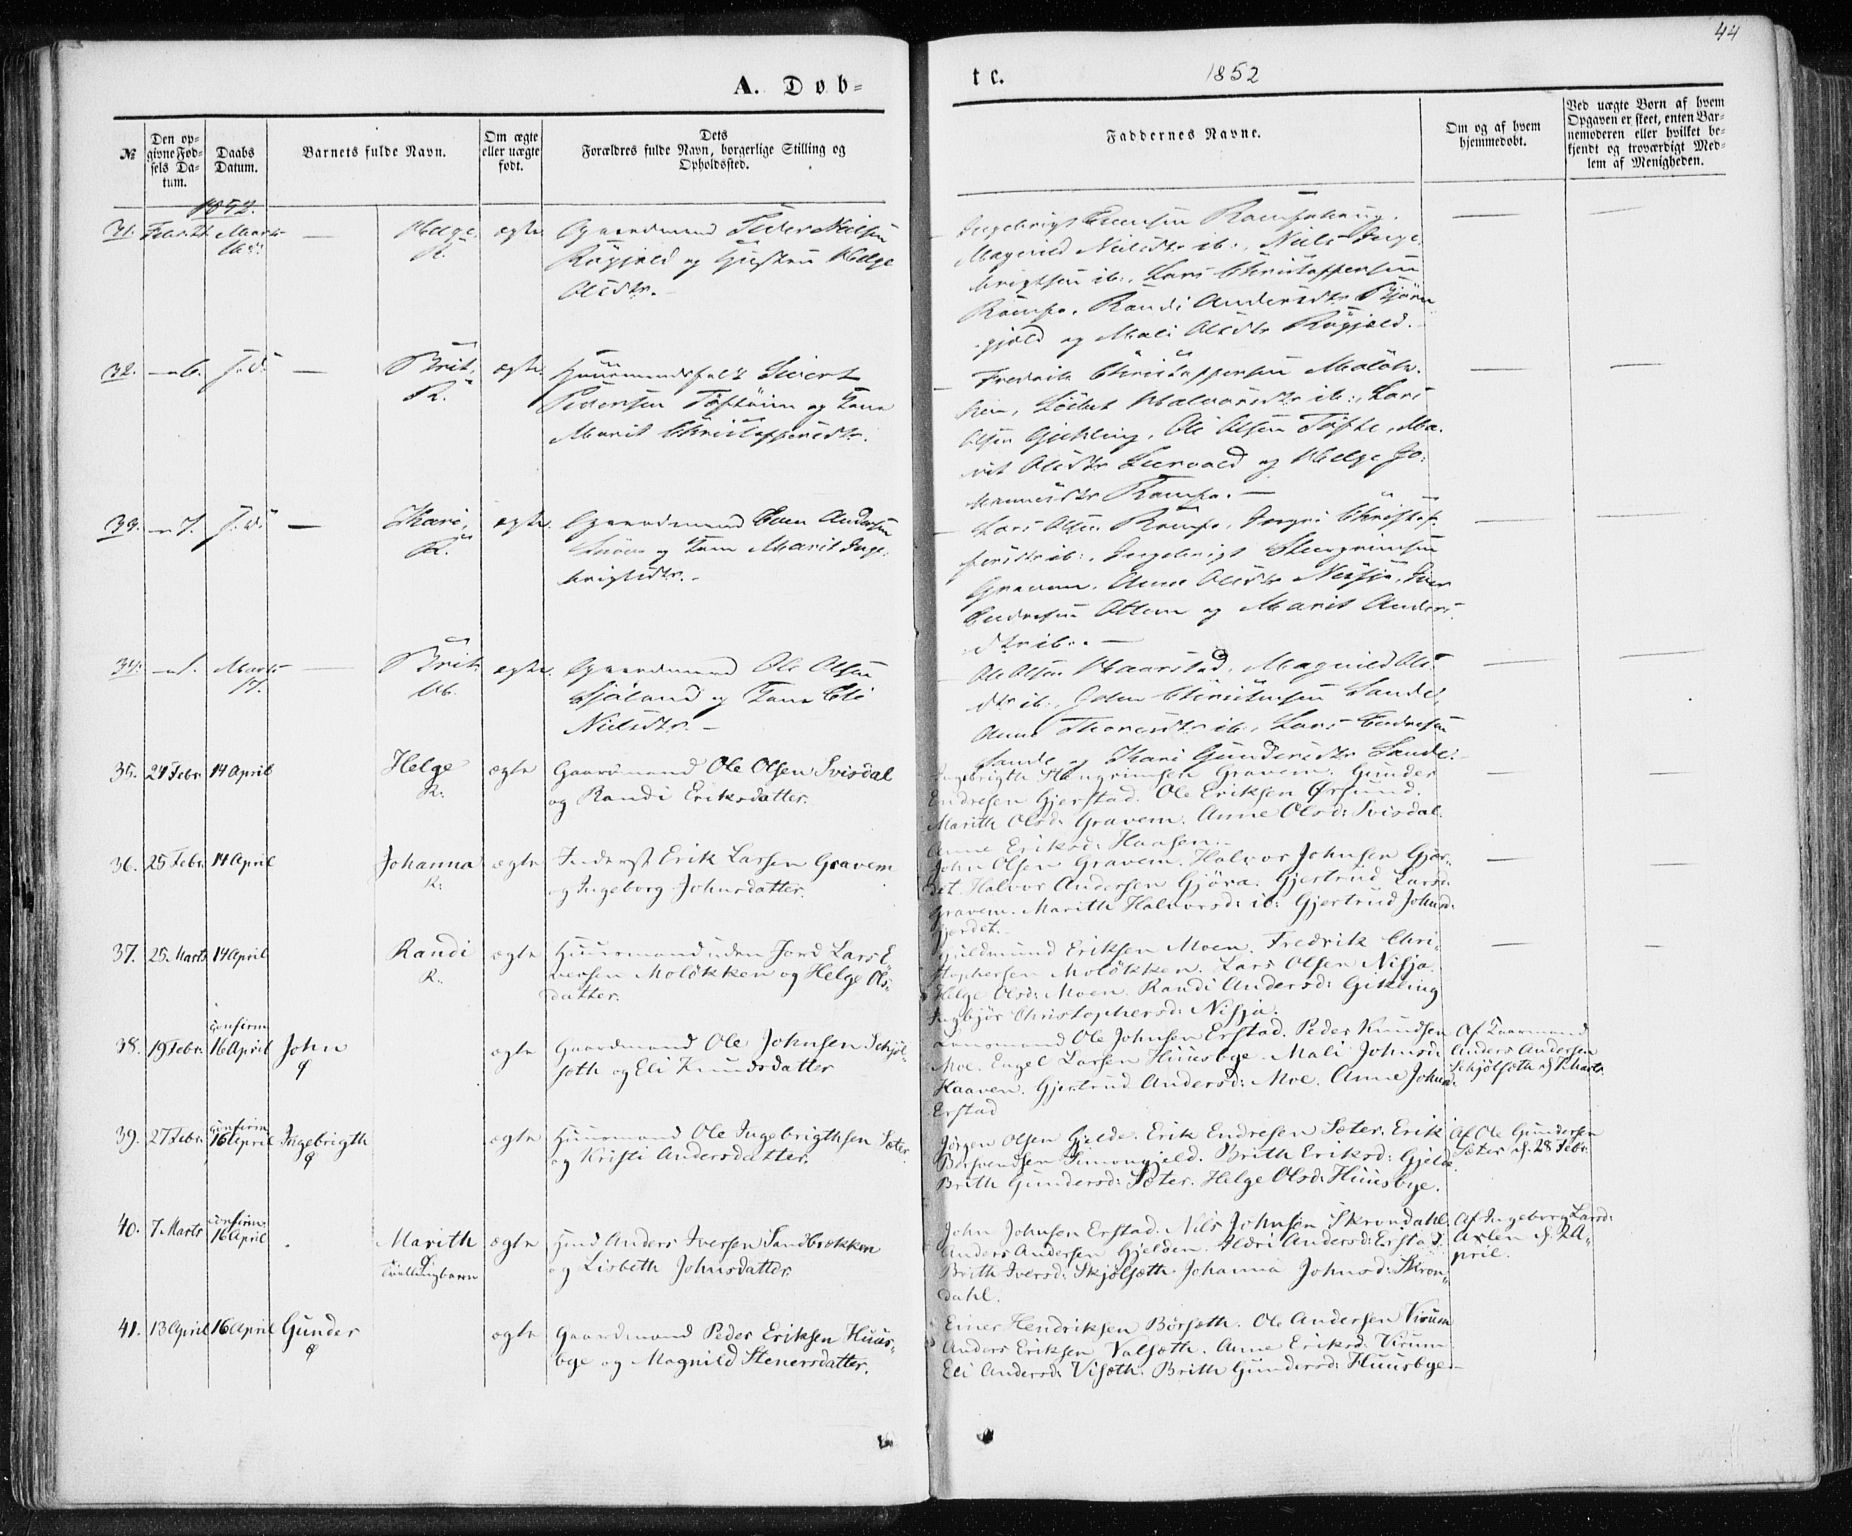 44
A. Døb=
te.
1852
№
Den op=
givne Fød=
sels Da=
tum.
Daabs
Datum.
Barnets fulde Navn.
Om ægte
eller uægte
født.
Dets
Forældres fulde Navn, borgerlige Stilling og
Opholdssted.
Faddernes Navne.
Om og af hvem
hjemmedøbt.
Ved uægte Børn af hvem
Opgaven er skeet, enten Bar=
nemoderen eller hvilket be=
kjendt og troværdigt Med=
lem af Menigheden.
1852.
31.
Helge
R.
ægte
Gaardmand Peder Nielsen
Røgjeld og Hustru Helge
Olsdtr.
Magnild Nielsdtr ib:, Niels Inge
brigtsen ib:, Lars Christophersen
Romfo, Randi Andersdtr Bjørn
gjeld og Mali Olsdtr Røgjeld.
32.
Brit,
R.
ægte
Huusmandsfolk Sivert
Pedersen Toftøien og Kone
Marit Christophersdtr.
Fredrik Christophersen Moløk-
ken, Halvorsdtr ib:, Lars
Olsen Gjikling, Ole Olsen Tofte, Ma-
rit Olsdtr og Helge Jo-
hannesdtr Romfo. —
33.
Kari,
R.
ægte
Gaardmand Even Andersen
og Kone Marit Inge-
brigtsdtr. -
Lars Olsen Romfo, Ingri Christof-
fersdtr ib:, Ingebrigt Steengrimsen
Gravem, Anne Olsdtr Nisja, Iver
Endresen Ottem og Marit Anders-
dtr ib: -
34.
Marts
17.
Brit
ægte
Gaardmand Ole Olsen
og Kone Eli
Nielsdtr. -
Ole Olsen Haarstad, Magnild Ols-
dtr ib:, John Christensen Sande,
Anne Thoresdtr ib:, Lars Endresen
Sande og Kari Gundersdtr Sande.
35.
21 Febr
14 April
Helge
R.
ægte
Gaardmand Ole Olsen Svisdal
og Randi Eriksdatter.
Ingebrigth Stengrimsen Gravem. Gunder
Endresen Gjerstad. Ole Eriksen Ørsund.
Marith Olsd: Gravem. Anne Olsd: Svisdal.
Anne Eriksd: Haasen.
36.
25 Febr.
14 April
Johanna
R.
ægte
Inderst Erik Larsen Gravem
og Ingeborg Johnsdatter.
John Olsen Gravem. Halvor Johnsen Gjør-
det. Halvor Andersen Gjöra. Gjertrud Larsd:
Gravem. Marith Halvorsd: ib: Gjertrud Johnsd:
Gjerdet.
37.
25. Marts
14 April
Randi
R.
ægte
Huusmand uden Jord Lars E
versen Moløkken og Helge Ols-
datter.
Guldmund Eriksen Moen. Fredrik Chri-
stophersen Moløkken. Lars Olsen Nisja.
Helge Olsd: Moen. Randi Andersd: Gikling
Ingbjør Christophersd: Nisja.
38.
19 Febr.
confirm
16 April
John
ægte
Gaardmand Ole Johnsen Schjöl-
seth og Eli Knudsdatter
Lensmand Ole Johnsen Erstad. Peder Knudsen
Moe. Engel Larsen Huusbye. Mali Johnsd:
Haaven. Gjertrud Andersd: Moe. Anne Johnsd:
Erstad
Af Gaarmand
Anders Andersen
Schjölseth d. 7 Marts
39.
27 Febr.
confirm
16 April
Ingebrigth
ægte
Huusmand Ole Ingebrigthsen Sæter
og Kristi Andersdatter.
Jørgen Olsen Gjelde. Erik Endresen Sæter. Erik
Simongjeld. Brith Eriksd: Gjelde
Brith Gundersd: Sæter. Helge Olsd: Huusbye.
Af Ole Gundersen
Sæter d. 28 Febr.
40.
7 Marts
confirm
16 April
Marith
Tvillingbarn
ægte
Hmd Anders Iversen Sandbrækken
og Lisbeth Johnsdatter.
John Johnsen Erstad. Nils Johnsen Skrondahl.
Anders Andersen Gjelden. Ildri Andersd: Erstad.
Brith Iversd: Skjølseth. Johanna Johnsd: Skron-
dahl.
Af Ingeborg Larsd:
Axlen d. 2 A-
pril.
41.
13 April
16 April
Gunder
ægte
Gaardmand Peder Eriksen Huus-
bye og Magnild Stenersdatter.
Einer Hendriksen Börsæth. Ole Andersen Virum
Anders Eriksen Valsæth. Anne Eriksd: Virum
Eli Andersd: Viseth. Brith Gundersd: Huusbye